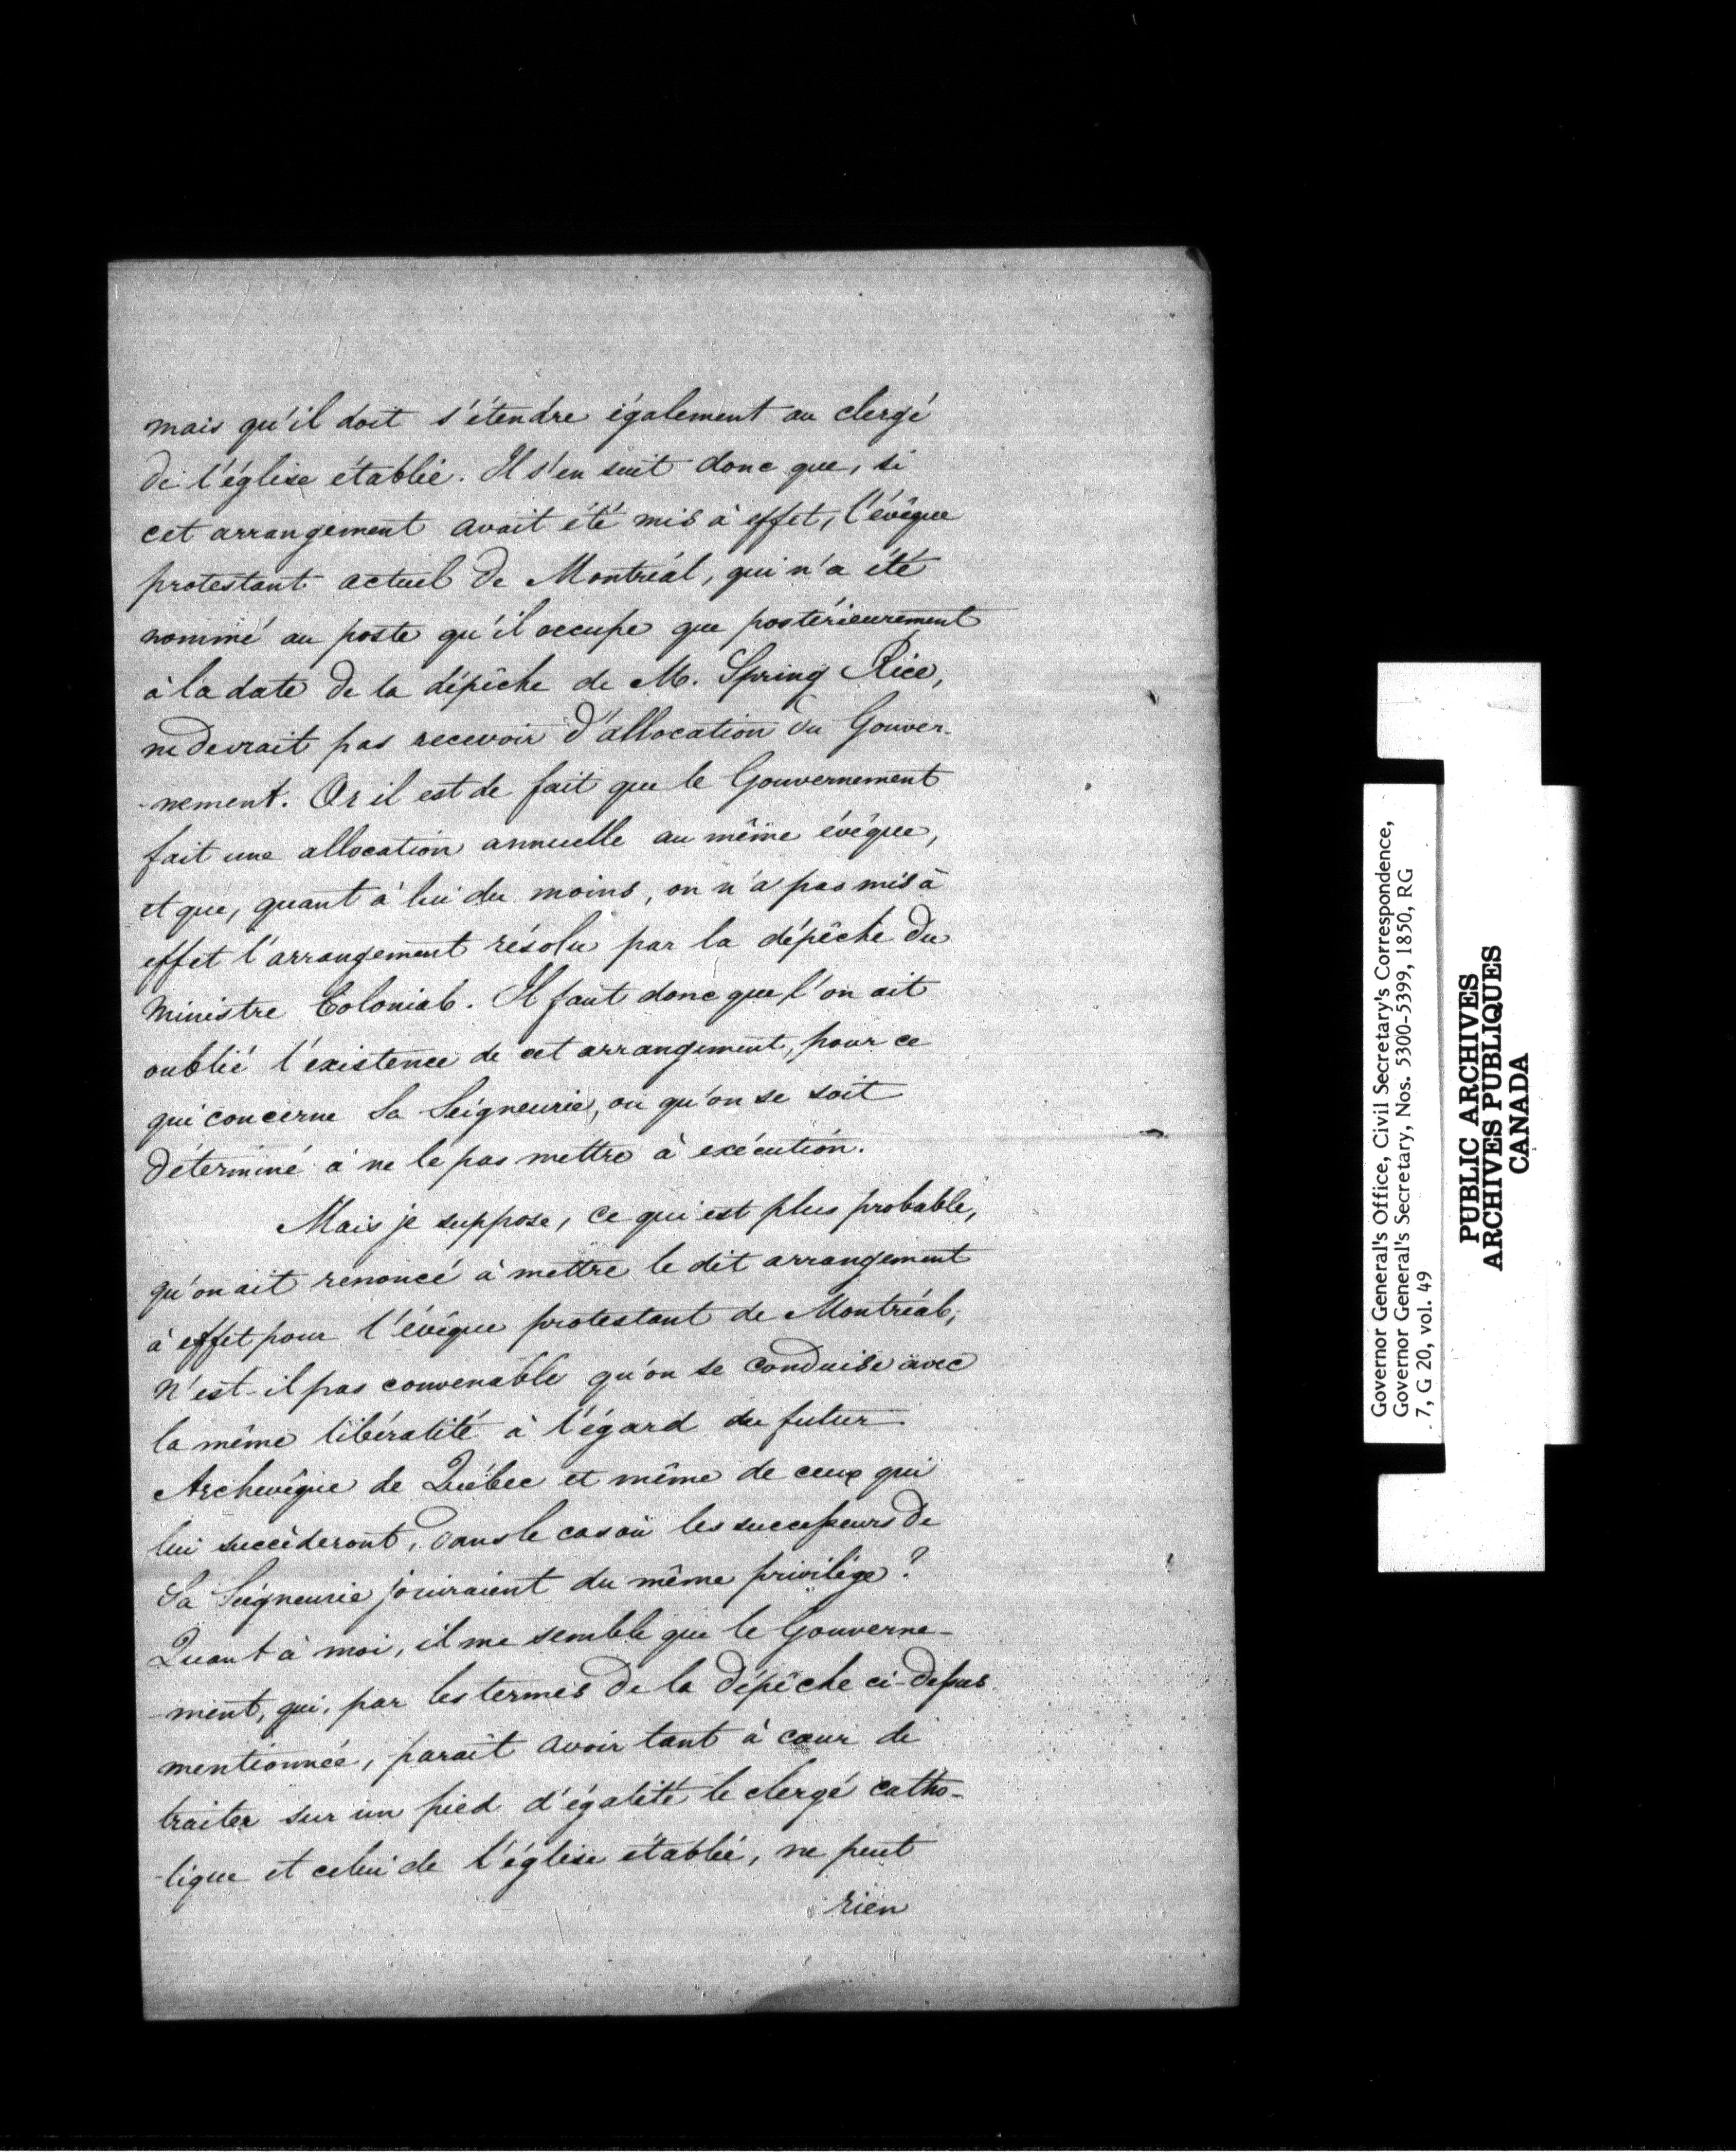 mais qu'il doit s'étendre également au clergé
de l'église établie. Il s'en suit donc que, si
cet arrangement avait été mis à effet, l'évêque
protestant actuel de Montréal, qui n'a été
nommé au poste qu'il occupe que postérieurement
à la date de la dépêche de M. Spring Rice,
ne devrait pas recevoir d'allocation du Gouver-
-nement. Or il est de fait que le Gouvernement
fait une allocation annuelle au même évêque,
et que, quant à lui du moins, on n'a pas mis à
effet l'arrangement résolu par la dépêche du
Ministre Colonial. Il faut donc que l'on ait
oublié l'existence de cet arrangement, pour ce
qui concerne Sa Seigneurie, ou qu'on se soit
déterminé à ne le pas mettre à exécution.
Mais je suppose, ce qui est plus probable,
qu'on ait renoncé à mettre le dit arrangement
à effet pour l'évêque protestant de Montréal,
N'est-il pas convenable qu'on se conduise avec
la même libéralité à l'égard du futur
Archevêque de Québec et même de ceux qui
lui succèderont, dans le cas où les successeurs de
Sa Seigneurie jouiraient du même privilége?
Quant à moi, il me semble que le Gouverne-
-ment, qui, par les termes de la dépêche ci-dessus
mentionnée, parait avoir tant à cœur de
traiter sur un pied d'égalité le clergé catho-
-lique et celui de l'église établie, ne peut
rien
Governor General's Office, Civil Secretary's Correspondence,
Governor General's Secretary, Nos. 5300-5399, 1850, RG
7, G 20, vol. 49
PUBLIC ARCHIVES
ARCHIVES PUBLIQUES
CANADA